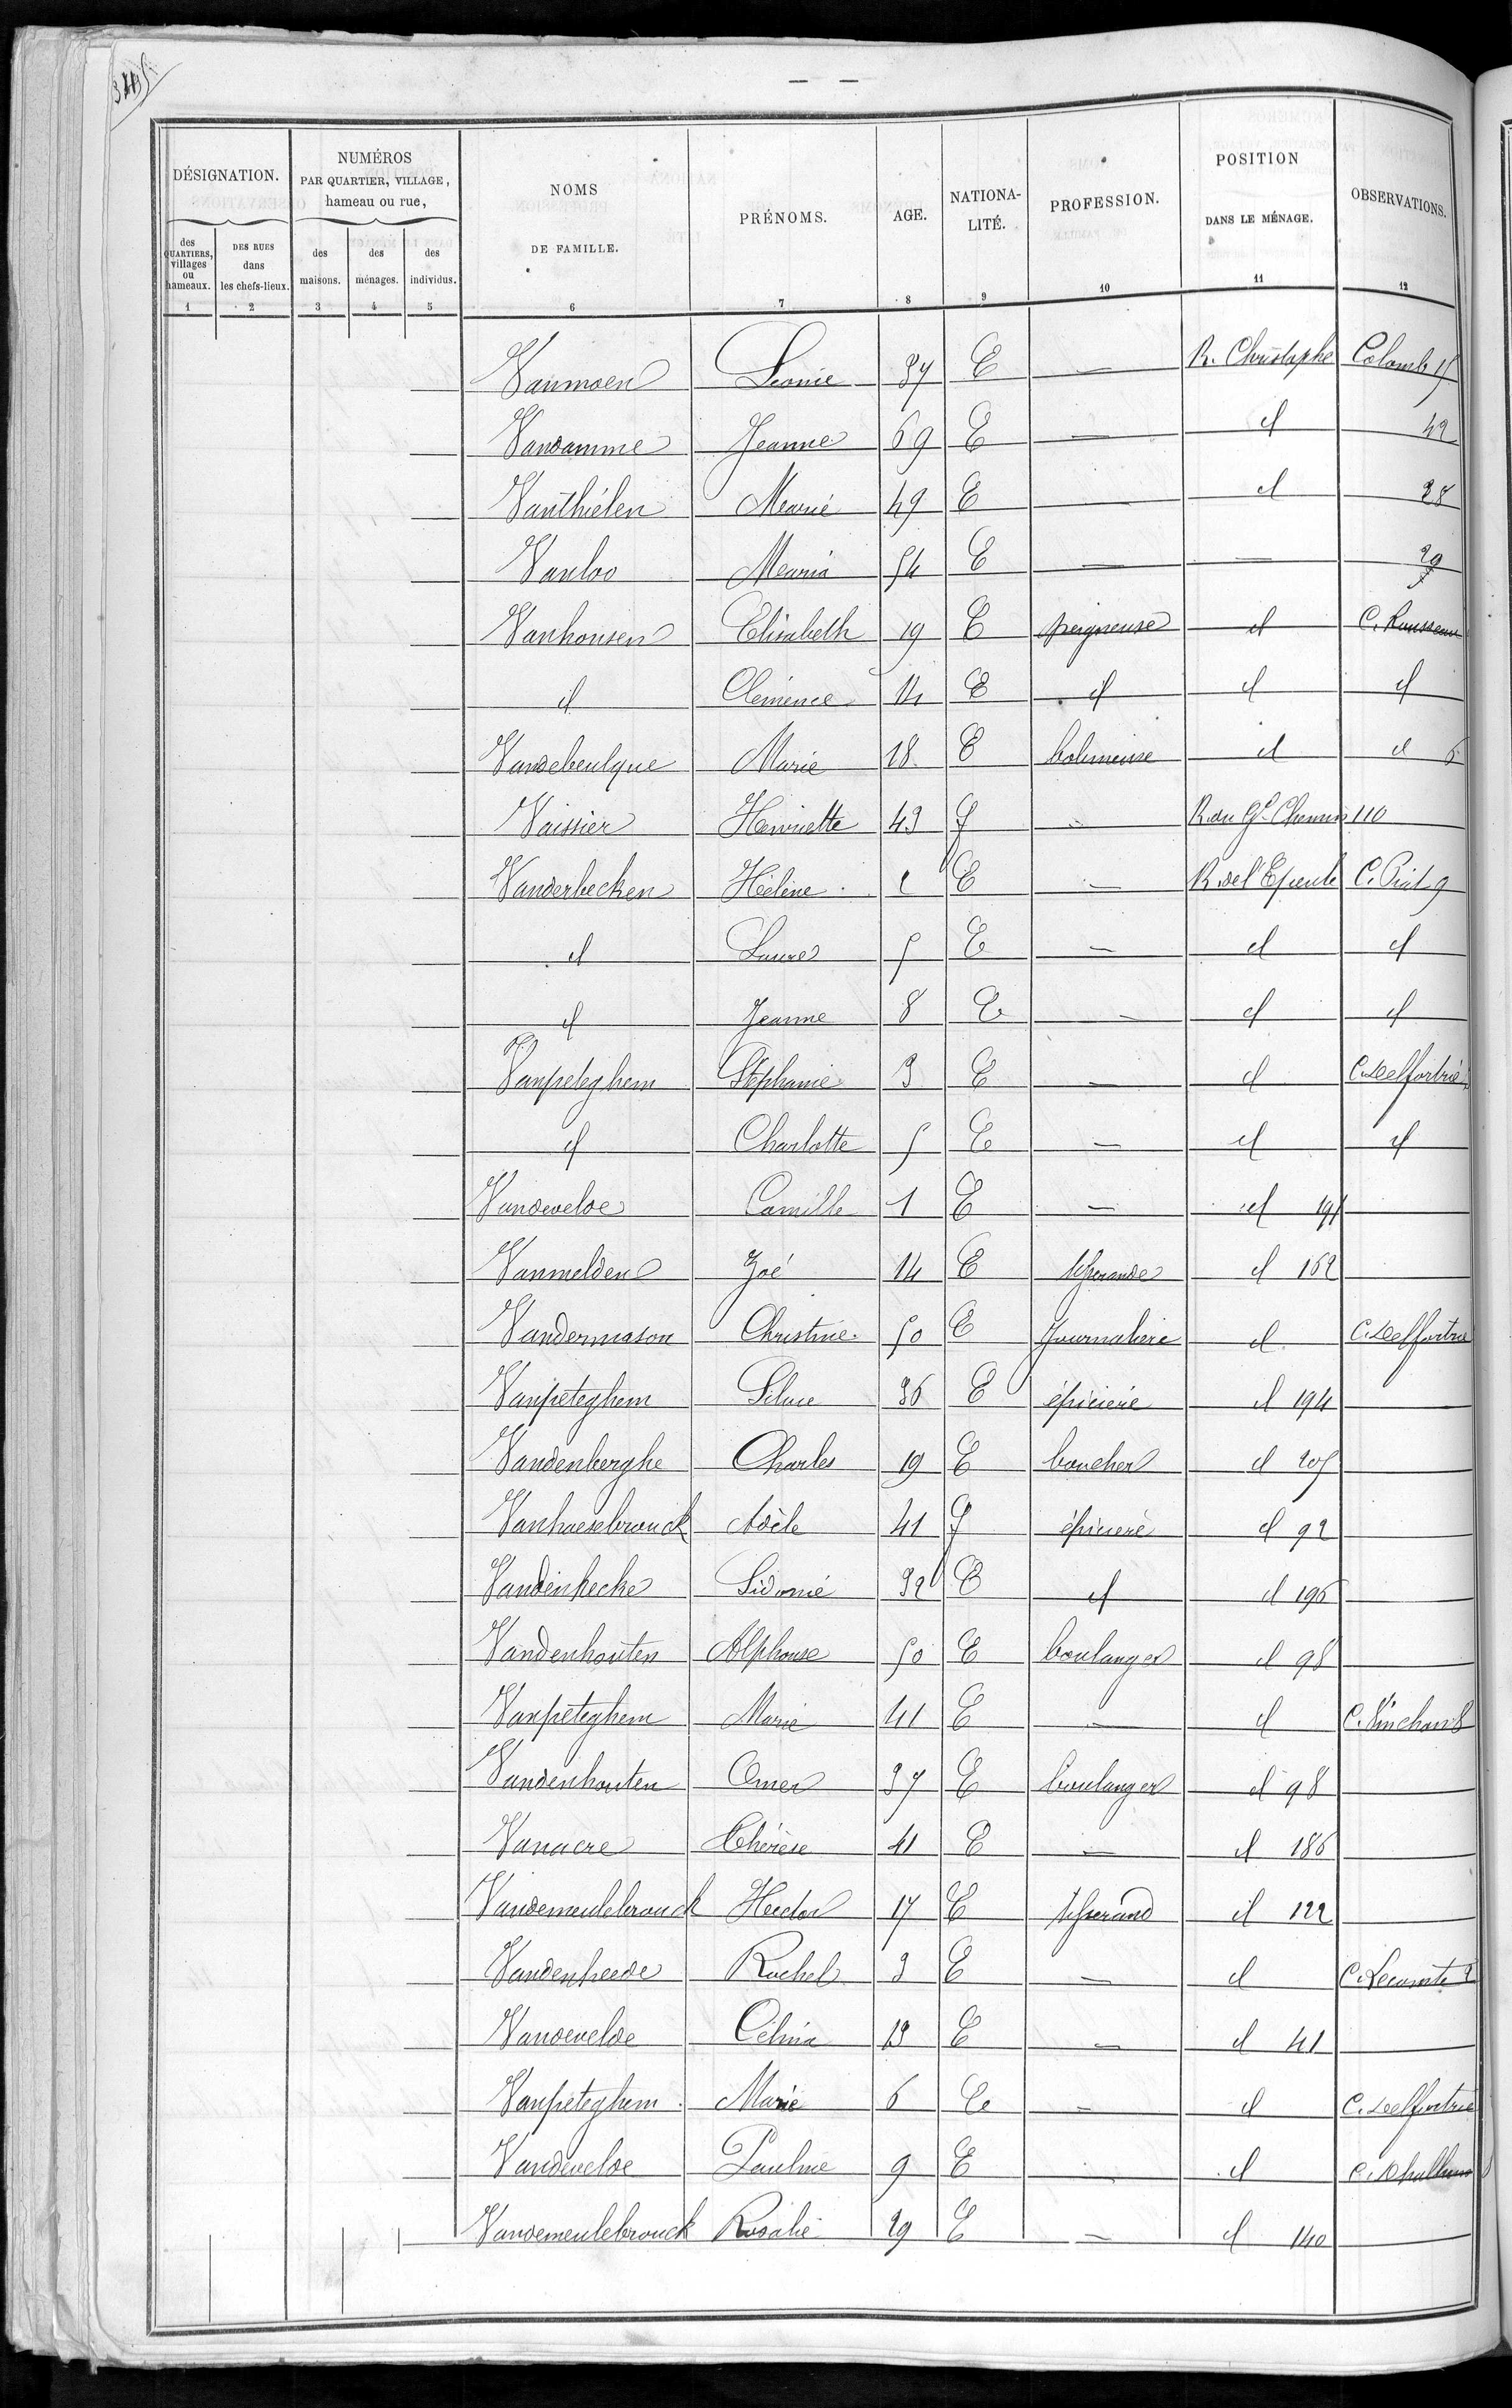 345
DÉSIGNATION. NUMÉROS PAR QUARTIER, VILLAGE, hameau ou rue, NOMS DE FAMILLE. PRÉNOMS. AGE. NATIONALITÉ. PROFESSION. POSITION DANS LE MÉNAGE. OBSERVATIONS.
des QUARTIERS, villages ou hameaux. DES RUES dans les chefs-lieux. des maisons. des ménages. des individus.
1 2 3 4 5 6 7 8 9 10 11 12
Vanmoen Léonie 37 E — R. Christophe Colomb 15
Vandamme Jeanne 69 E — d 42
Vanthiélen Marie 49 E — d 28
Vanloo Maria 54 E — — 29
Vanhonsen Elisabeth 19 E peigneuse d C. Rousseau
d Clémence 14 E d d d
Vandebeulque Marie 18 E bobineuse d d 6
Vaissier Henriette 43 f — R. du Gd Chemin 110
Vanderbecken Hélène E — R. de l'Epeule C. Piat 9
d Laure 5 E — d d
d Jeanne 8 E — d d
Vanpeteghem Stéphanie 3 E — d C. Delfortrie
d Charlotte 5 E — d d
Vandevelde Camille 1 E — d 191
Vanmelden Zoé 14 E tisserande d 162
Vandermason Christine 50 E Journalière d C. Delfortrie
Vanpeteghem 36 E épicière d 194
Vandenberghe Charles 19 E boucher d 205
Vanhaesebrouck Adèle 41 f épicière d 92
Vandenhecke Sidonie 32 E d d 196
Vandenhouten Alphonse 50 E boulanger d 98
Vanpeteghem Marie 41 E — d C.
Vandenhouten Omer 37 E boulanger d 98
Vanacre Thérèse 41 E — d 186
Vandemeulebrouck Hector 17 E tisserand d 122
Vandenheede Rachel 3 E — d C. Lecomte 2
Vandevelde Célina 13 E — d 41
Vanpeteghem Marie 6 E — d C. Delfortrie
Vandevelde Pauline 9 E — d C.
Vandemeulebrouck Rosalie 29 E — d 140